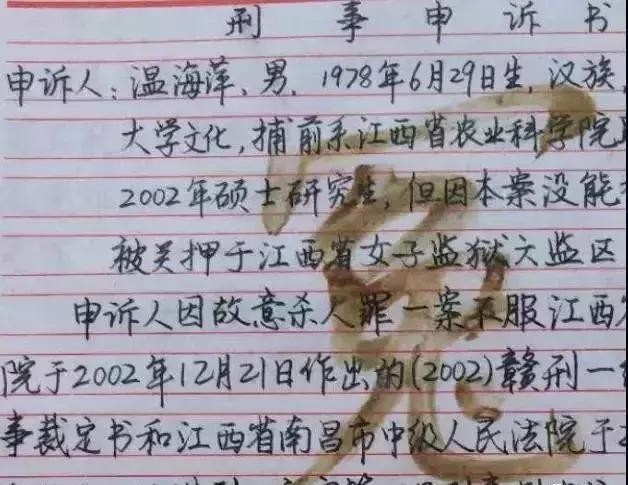 刑事申诉书
申诉人:温海萍、男、1978年6月29日生,汉族,
大学文化,捕前系江西省农业科学院
2002年硕士研究生,但因本案没能
被关押于江西省女子监狱六监区
申诉人因故意杀人罪一案不服江西
院于2002年12月21日作出的(2002)赣刑一
事裁定书和江西省南昌市中级人民法院于
冤